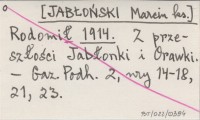 [JABŁOŃSKI Marcin ks.]
Rodomił 1914. Z prze-
szłości Jabłonki i Orawki.
— Gaz. Podh. 2, nry 14-18,
21, 23.